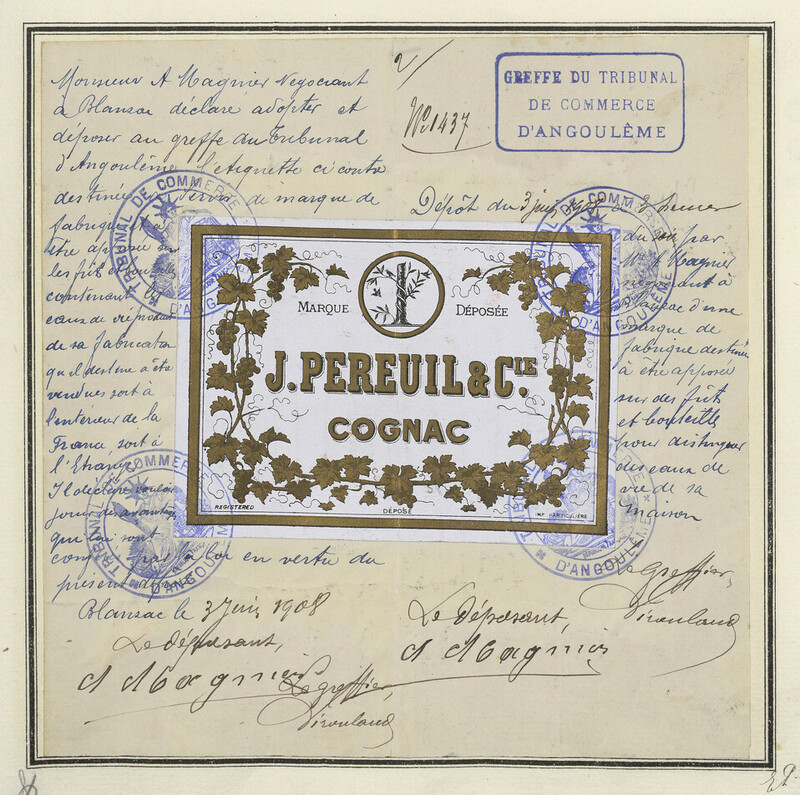 Monsieur A Magnier Negociant
à Blanzac déclare adopter et
déposer au greffe du Tribunal
d'Angoulême l'étiquette ci contre
destinée servir de marque de
fabrique
être apposée sur
les fûts et bouteilles
contenant les
eaux de vie produit
de sa fabrication
qu'il destine à être
vendues soit à
l'intérieur de la
France, soit à
l'Etranger
Il déclare vouloir
jouir des avantages
qui lui sont
par la loi en vertu du
présent dépôt
Blanzac le 3 Juin 1908
Le déposant,
A Magnier
Le greffier,
2/
No 1437
GREFFE DU TRIBUNAL
DE COMMERCE
D'ANGOULÊME
Dépôt du 3 juin 1908 à heures
du soir par
Mr A Magnier
négociant à
Blanzac d'une
marque de
fabrique destinée
à être apposée
sur des fûts
et bouteilles
pour distinguer
des eaux de
vie de sa
maison
Le Greffier,
Le déposant,
A Magnier
MARQUE DÉPOSÉE
J. PEREUIL & CIE.
COGNAC
REGISTERED
DÉPOSÉ
IMP. PARTICULIÈRE
TRIBUNAL DE COMMERCE
D'ANGOULÊME
TRIBUNAL DE COMMERCE
D'ANGOULÊME
TRIBUNAL DE COMMERCE
D'ANGOULÊME
TRIBUNAL DE COMMERCE
D'ANGOULÊME